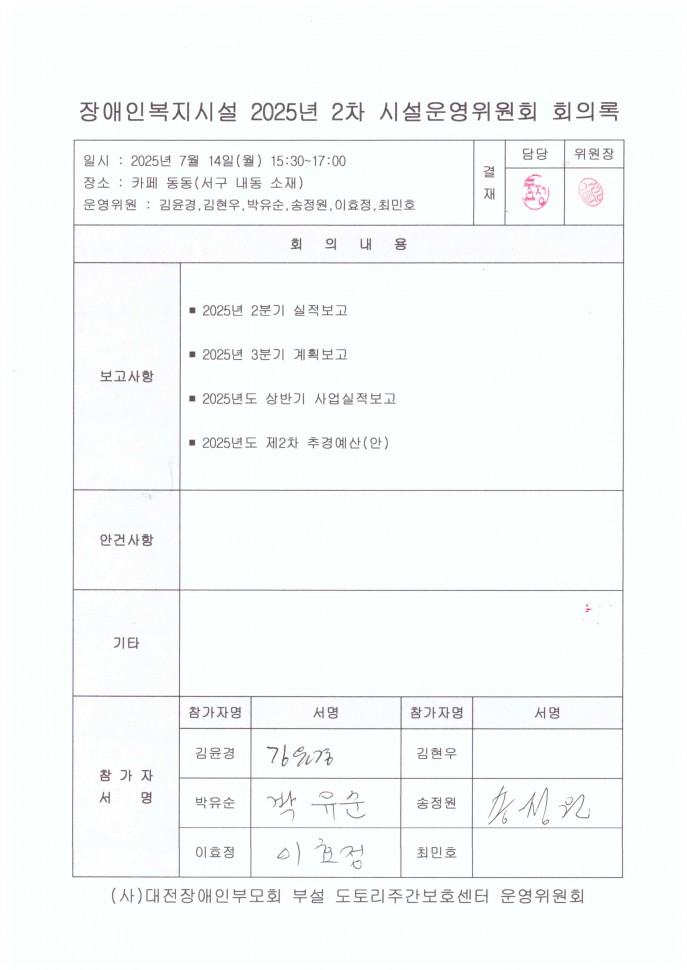 장애인복지시설 2025년 2차 시설운영위원회 회의록
일시 : 2025년 7월 14일(월) 15:30~17:00
장소 : 카페 동동(서구 내동 소재)
운영위원 : 김윤경,김현우,박유순,송정원,이효정,최민호
결재
담당 위원장
회 의 내 용
보고사항
■ 2025년 2분기 실적보고
■ 2025년 3분기 계획보고
■ 2025년도 상반기 사업실적보고
■ 2025년도 제2차 추경예산(안)
안건사항
기타
참 가 자
서 명
참가자명 서명 참가자명 서명
김윤경 김윤경 김현우
박유순 박유순 송정원 송정원
이효정 이효정 최민호
(사)대전장애인부모회 부설 도토리주간보호센터 운영위원회